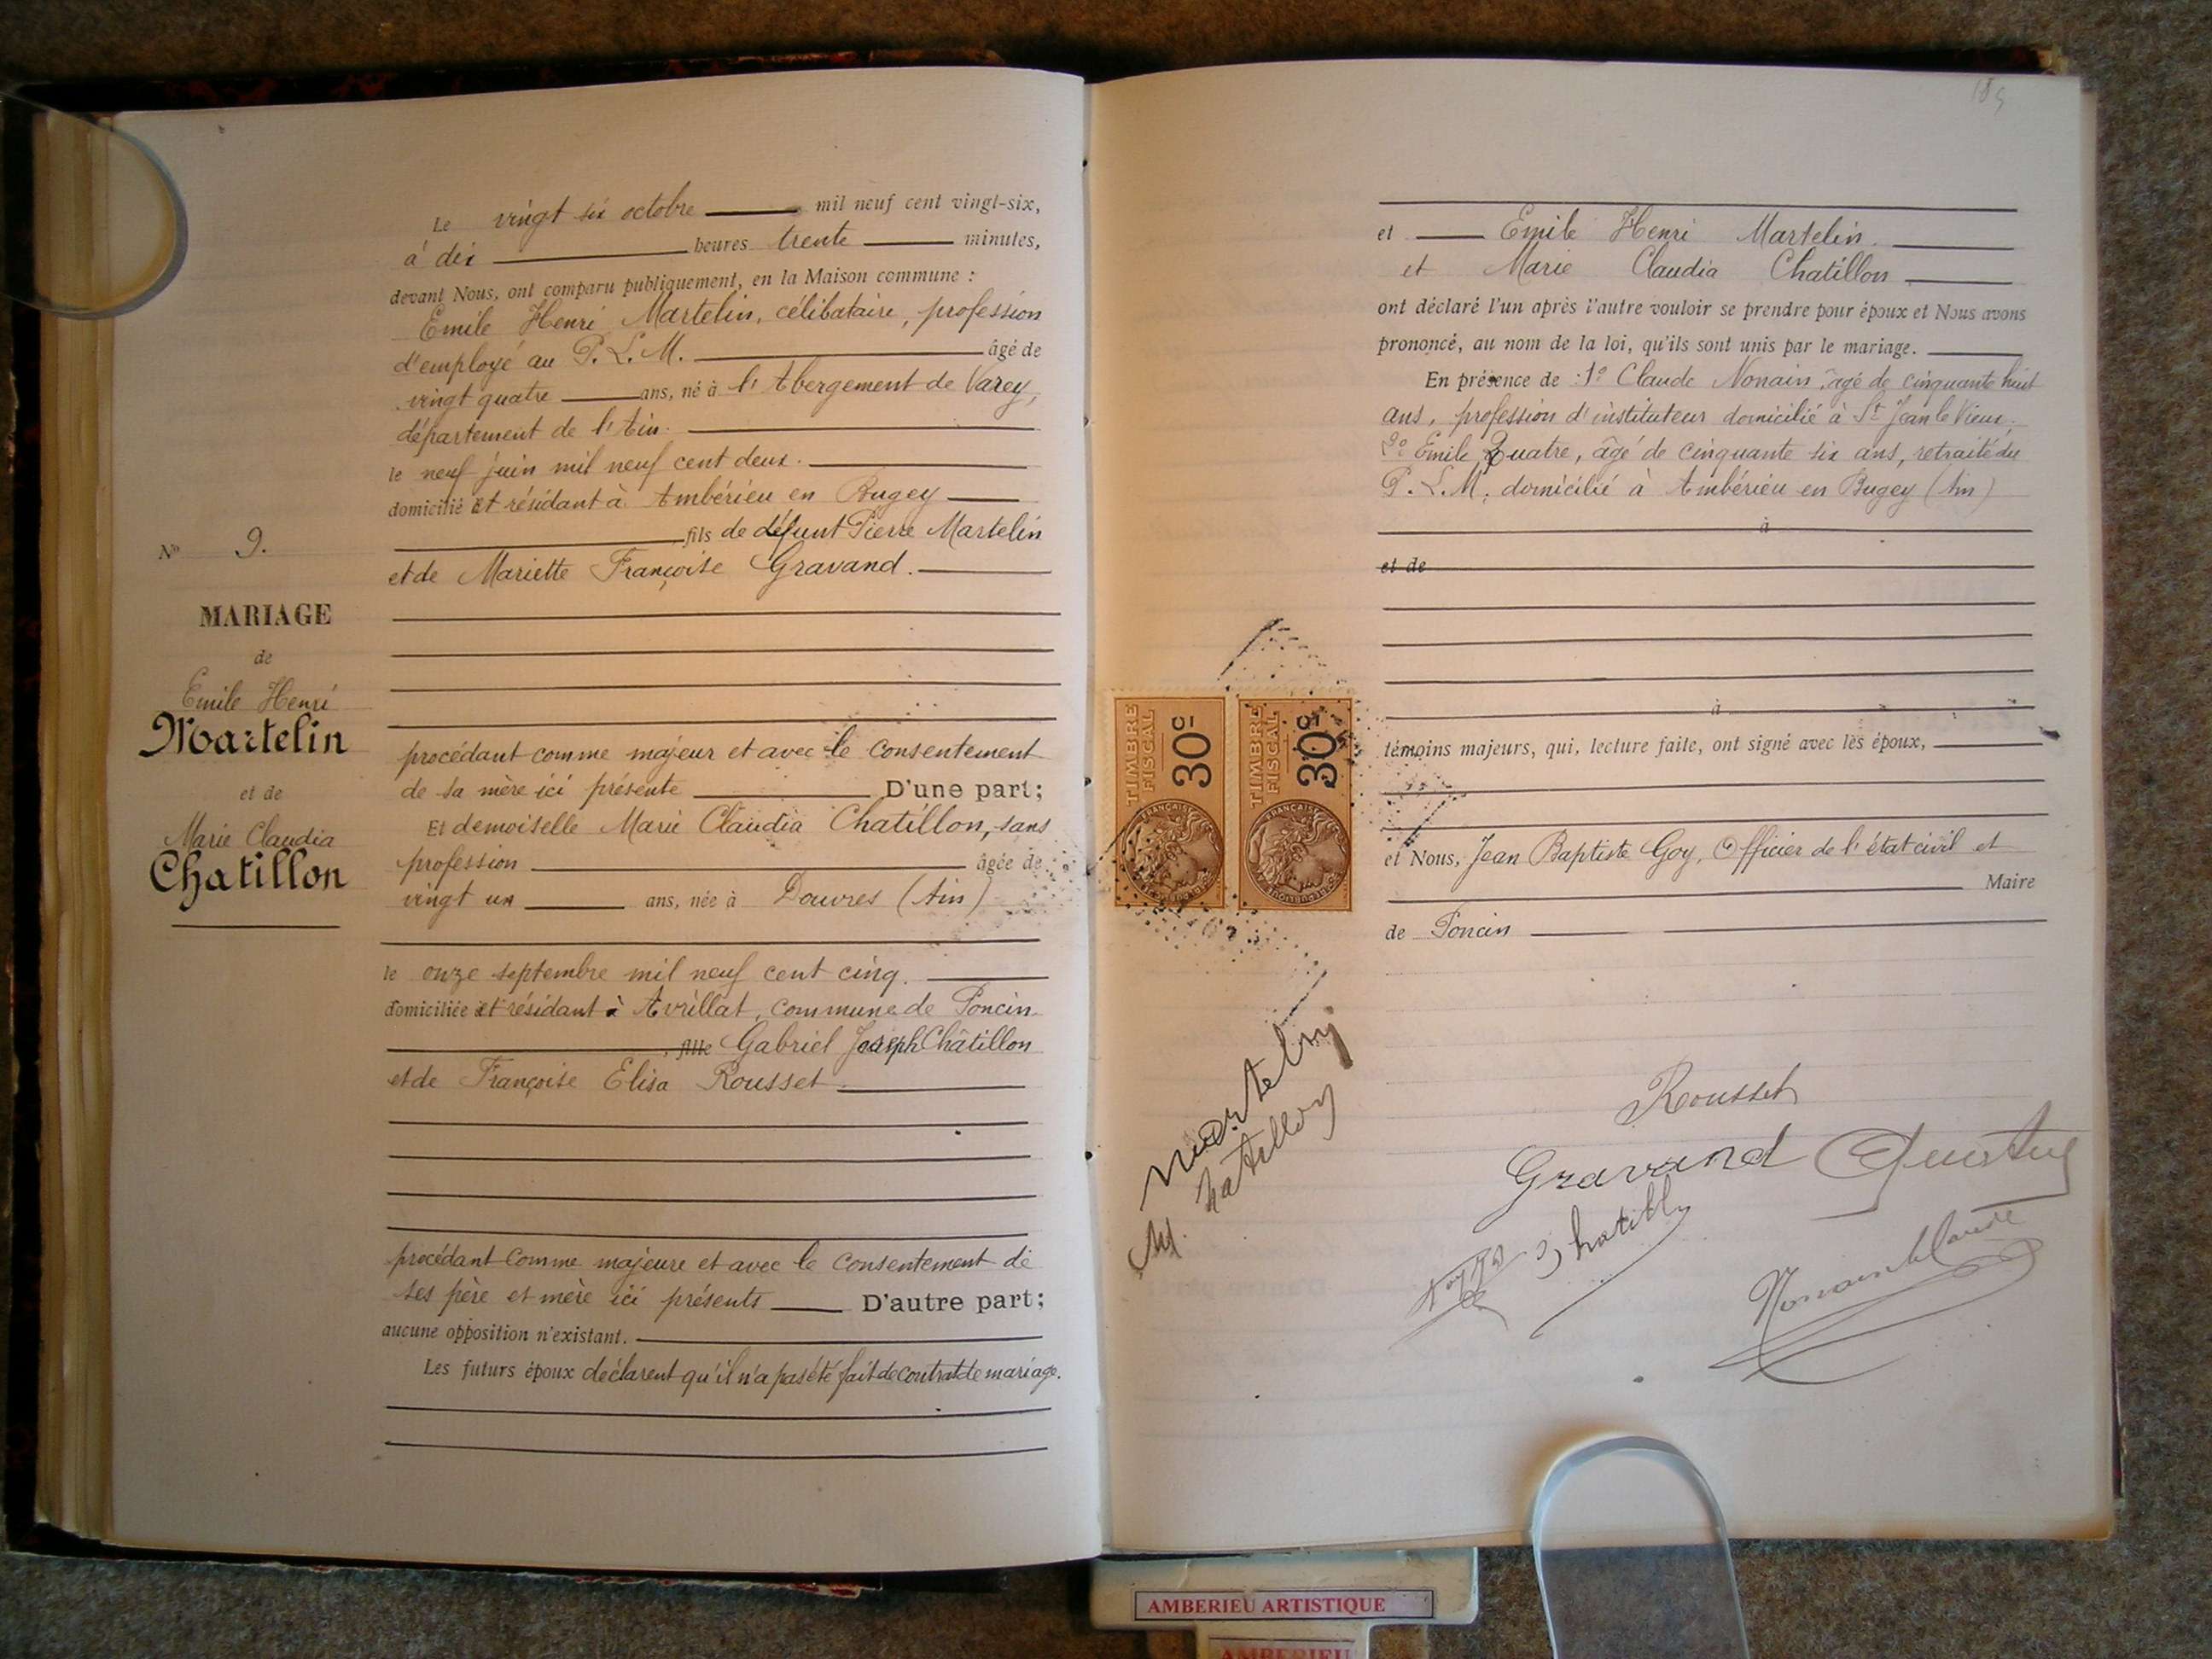 Le vingt six octobre mil neuf cent vingt-six,
à dix heures trente minutes,
devant Nous, ont comparu publiquement, en la Maison commune :
Emile Henri Martelin, célibataire, profession
d'employé au P. L. M. âgé de
vingt quatre ans, né à l'Abergement de Varey,
département de l'Ain.
le neuf juin mil neuf cent deux.
domicilié et résidant à Ambérieu en Bugey
fils de défunt Pierre Martelin
et de Mariette Françoise Gravand.
N° 9.
MARIAGE
de
Emile Henri
Martelin
et de
Marie Claudia
Chatillon
procédant comme majeur et avec le consentement
de sa mère ici présente D'une part;
Et demoiselle Marie Claudia Chatillon, sans
profession âgée de
vingt un ans, née à Douvres (Ain)
le onze septembre mil neuf cent cinq.
domiciliée et résidant à Avrillat, commune de Poncin
fille Gabriel Joseph Châtillon
et de Françoise Elisa Rousset
procédant comme majeure et avec le consentement de
ses père et mère ici présents D'autre part;
aucune opposition n'existant.
Les futurs époux déclarent qu'il n'a pas été fait de contrat de mariage.
et Emile Henri Martelin.
et Marie Claudia Chatillon
ont déclaré l'un après l'autre vouloir se prendre pour époux et Nous avons
prononcé, au nom de la loi, qu'ils sont unis par le mariage.
En présence de : 1° Claude Nonain, âgé de cinquante huit
ans, profession d'instituteur domicilié à St Jean le Vieux,
2° Emile Quatre, âgé de cinquante six ans, retraité du
P. L. M. domicilié à Ambérieu en Bugey (Ain)
à
et de
à
témoins majeurs, qui, lecture faite, ont signé avec les époux,
et Nous, Jean Baptiste Goy, Officier de l'état civil et
Maire
de Poncin
TIMBRE FISCAL 30c
TIMBRE FISCAL 30c
Martelin
M. Chatillon
Rousset
Gravand
Chatillon
Nonain Claude
AMBERIEU ARTISTIQUE
AMBERIEU